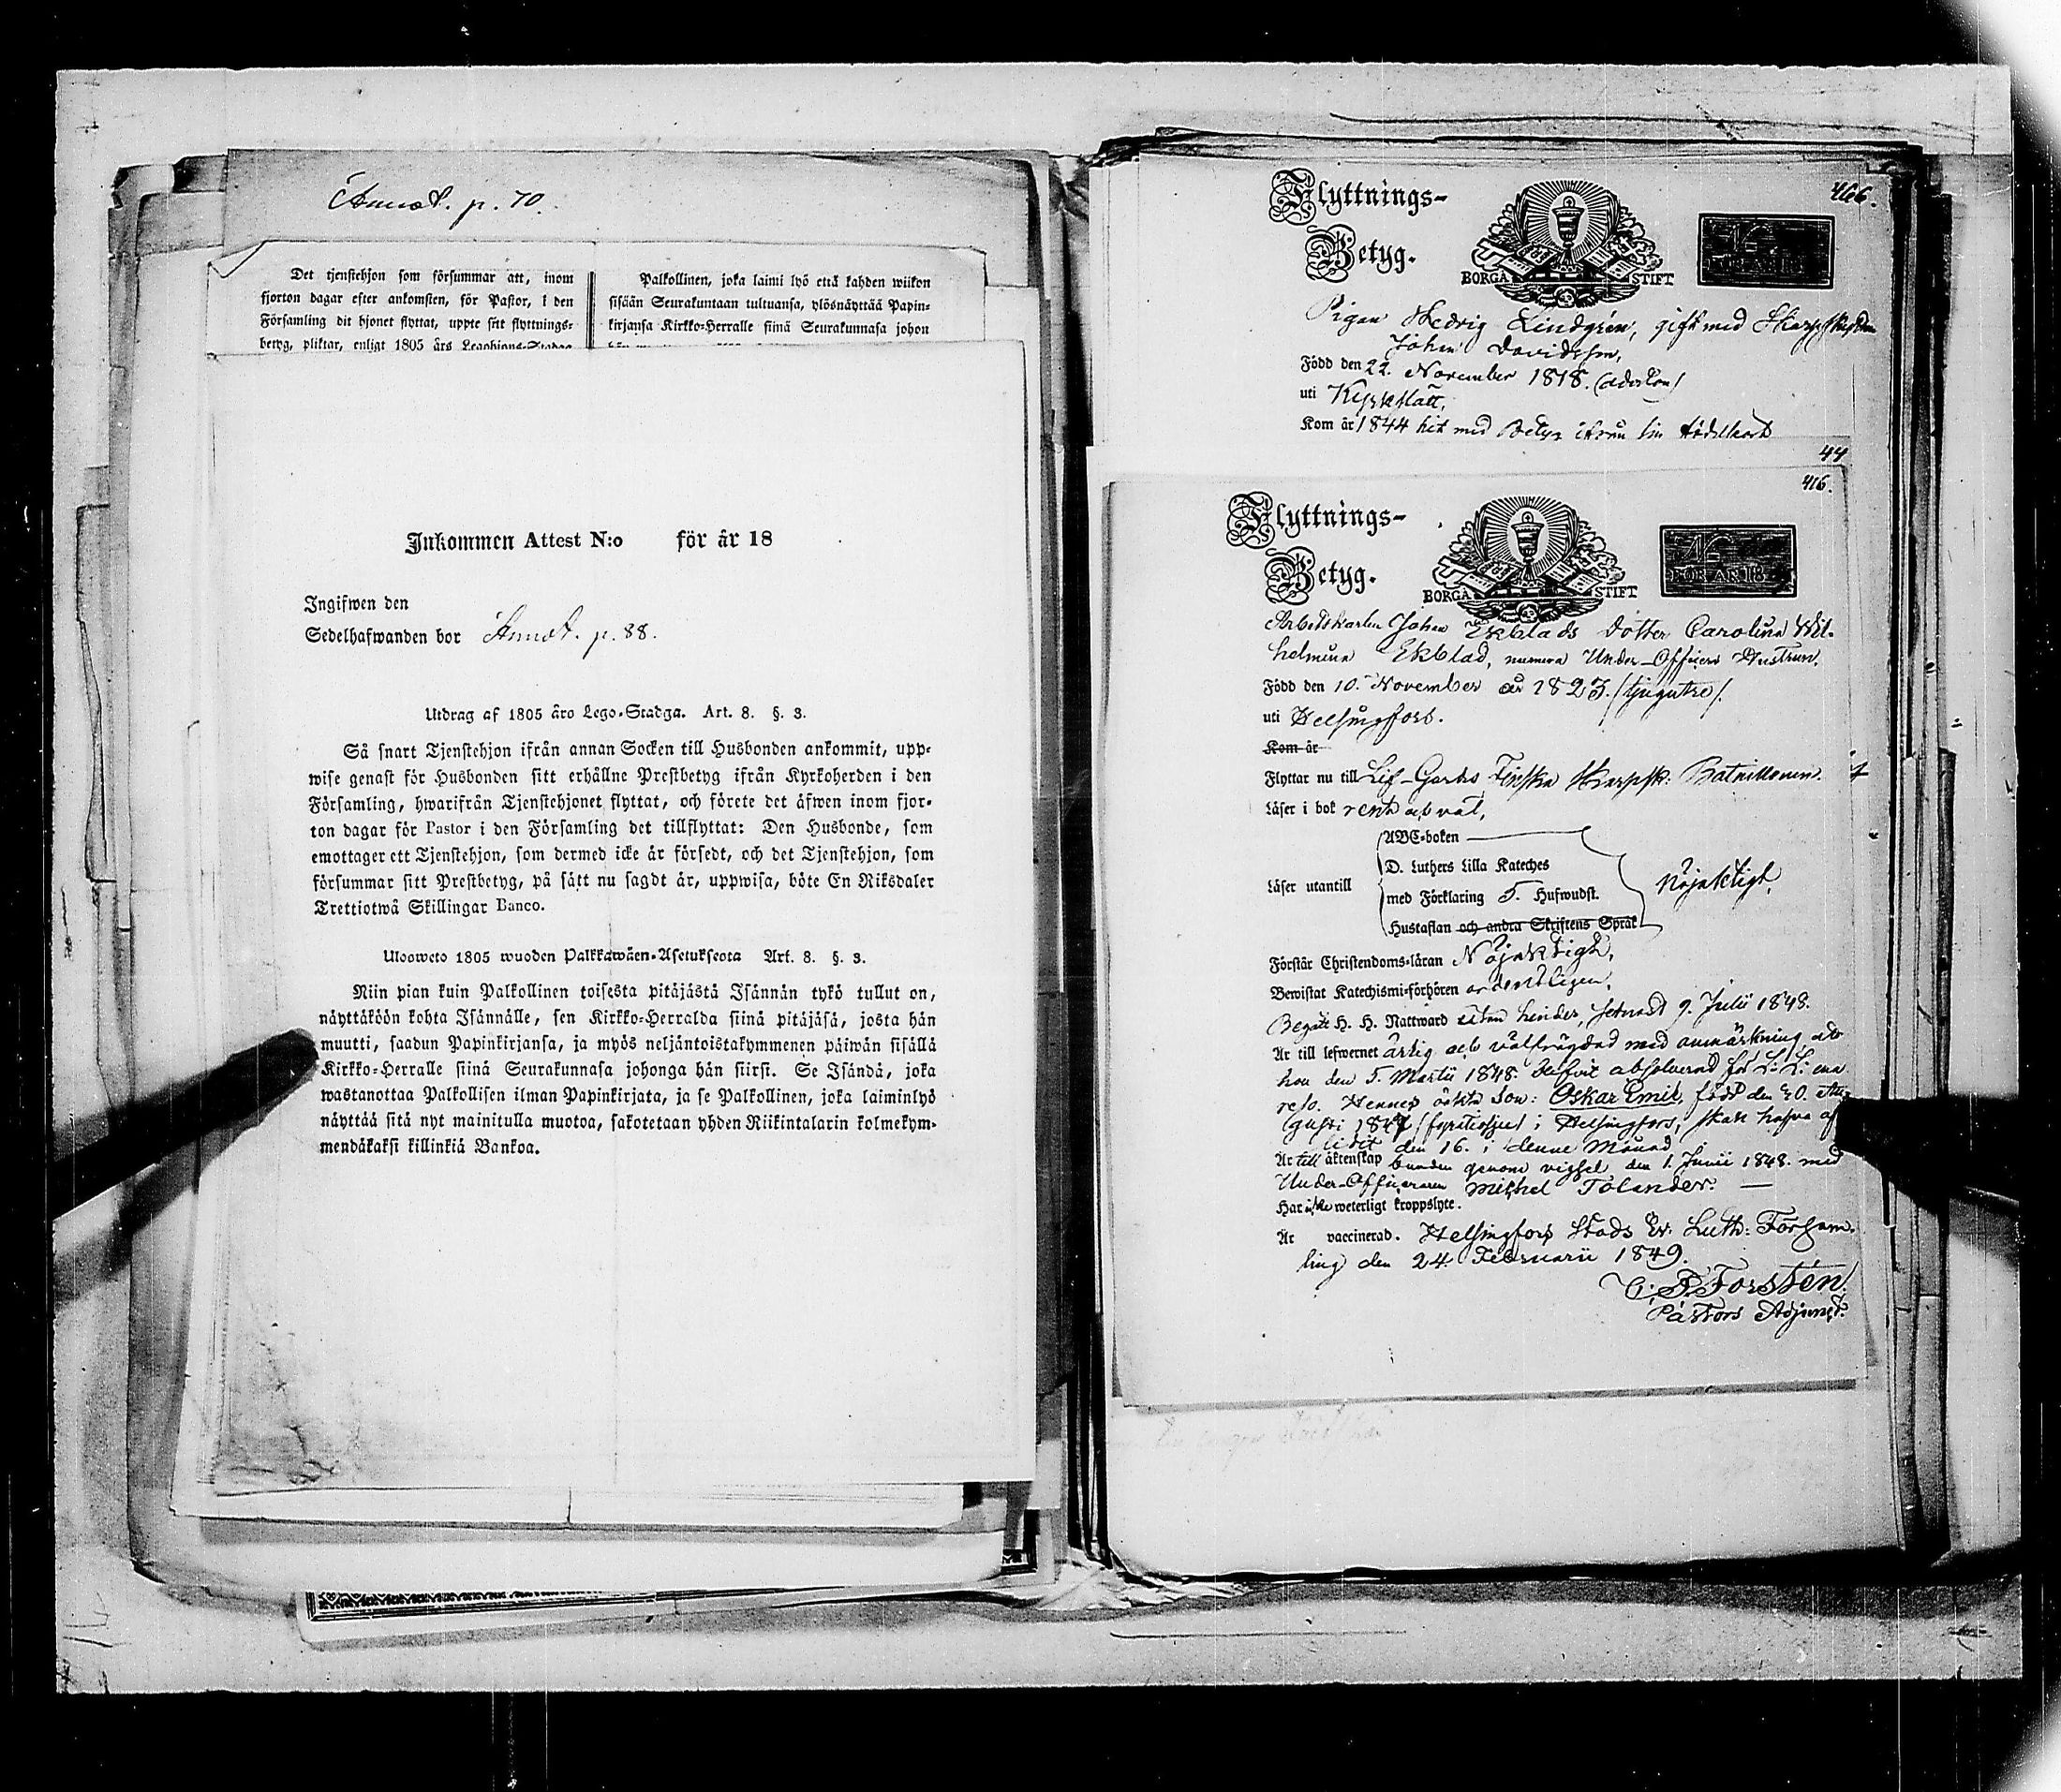 Annot. p. 70.
Det tjenstehjon som försummar att, inom
fjorton dagar efter ankomsten, för Pastor, i den
Församling dit hjonet flyttat, uppte sitt flyttnings-
betyg, pliktar, enligt 1805 års Legohjons-Stadga
Palkollinen, joka laimi lyö että kahden wiikon
sisään Seurakuntaan tultuansa, ylösnäyttää Papin-
kirjansa Kirkko-Herralle siinä Seurakunnasa johon
Inkommen Attest N:o för år 18
Ingifwen den
Sedelhafwanden bor Annot. p. 88.
Utdrag af 1805 års Lego-Stadga. Art. 8. §. 3.
Så snart Tjenstehjon ifrån annan Socken till Husbonden ankommit, upp-
wise genast för Husbonden sitt erhållne Prestbetyg ifrån Kyrkoherden i den
Församling, hwarifrån Tjenstehjonet flyttat, och förete det äfwen inom fjor-
ton dagar för Pastor i den Församling det tillflyttat: Den Husbonde, som
emottager ett Tjenstehjon, som dermed icke är försedt, och det Tjenstehjon, som
försummar sitt Prestbetyg, på sätt nu sagdt är, uppwisa, böte En Riksdaler
Trettiotwå Skillingar Banco.
Ulosweto 1805 wuoden Palkkawäen-Asetuksesta Art. 8. §. 3.
Niin pian kuin Palkollinen toisesta pitäjästä Isännän tykö tullut on,
näyttäköön kohta Isännälle, sen Kirkko-Herralda siinä pitäjäsä, josta hän
muutti, saadun Papinkirjansa, ja myös neljäntoistakymmenen päiwän sisällä
Kirkko-Herralle siinä Seurakunnasa johonga hän siirsi. Se Isändä, joka
wastanottaa Palkollisen ilman Papinkirjata, ja se Palkollinen, joka laiminlyö
näyttää sitä nyt mainitulla muotoa, sakotetaan yhden Riikintalarin kolmekym-
mendäkaksi killinkiä Bankoa.
466.
Flyttnings-
Betyg.
BORGÅ STIFT
Pigan Hedvig Lindgrén, gift med Skarpskytten
Johan Davidsson,
Född den 22. November 1818. (aderton)
uti Kyrkslätt,
Kom år 1844 hit med Betyg ifrån sin födelseort
44
416.
Flyttnings-
Betyg.
BORGÅ STIFT
N:o
FÖR ÅR 18
Arbetskarlen Johan Ekblads dotter Carolina Wil-
helmina Ekblad, numera Under-Officers Hustrun,
Född den 10. November år 1823. (tjugutre).
uti Helsingfors.
Kom år
Flyttar nu till Lif-Gardes Finska Skarpsk: Bataillonen.
Läser i bok rent och väl,
Läser utantill
ABC-boken
D. Luthers Lilla Kateches
med Förklaring 5. Hufwudst.
Hustaflan och andra Skriftens Språk
Nöjaktigt,
Förstår Christendoms-läran Nöjaktigt,
Bewistat Katechismi-förhören ordentligen,
Begått H. H. Nattward utan hinder, senast 9. Julii 1848.
Är till lefwernet ärlig och välfrägdad med anmärkning att
hon den 5. Martii 1848. blifvit absolverad för L: L: ena
reso. Hennes oäkta son: Oskar Emil, född den 20. Au-
gusti 1847 (fyratiosju) i Helsingfors, skall hafva af-
lidit den 16. i denne Månad
Är till äktenskap bunden genom vigsel den 1. Junii 1848. med
Under-Officeraren Michel Tolander. —
Har icke weterligt kroppslyte.
Är vaccinerad. Helsingfors Stads Ev. Luth: Försam-
ling den 24 Februarii 1849.
Forstén
Pastors Adjunct.